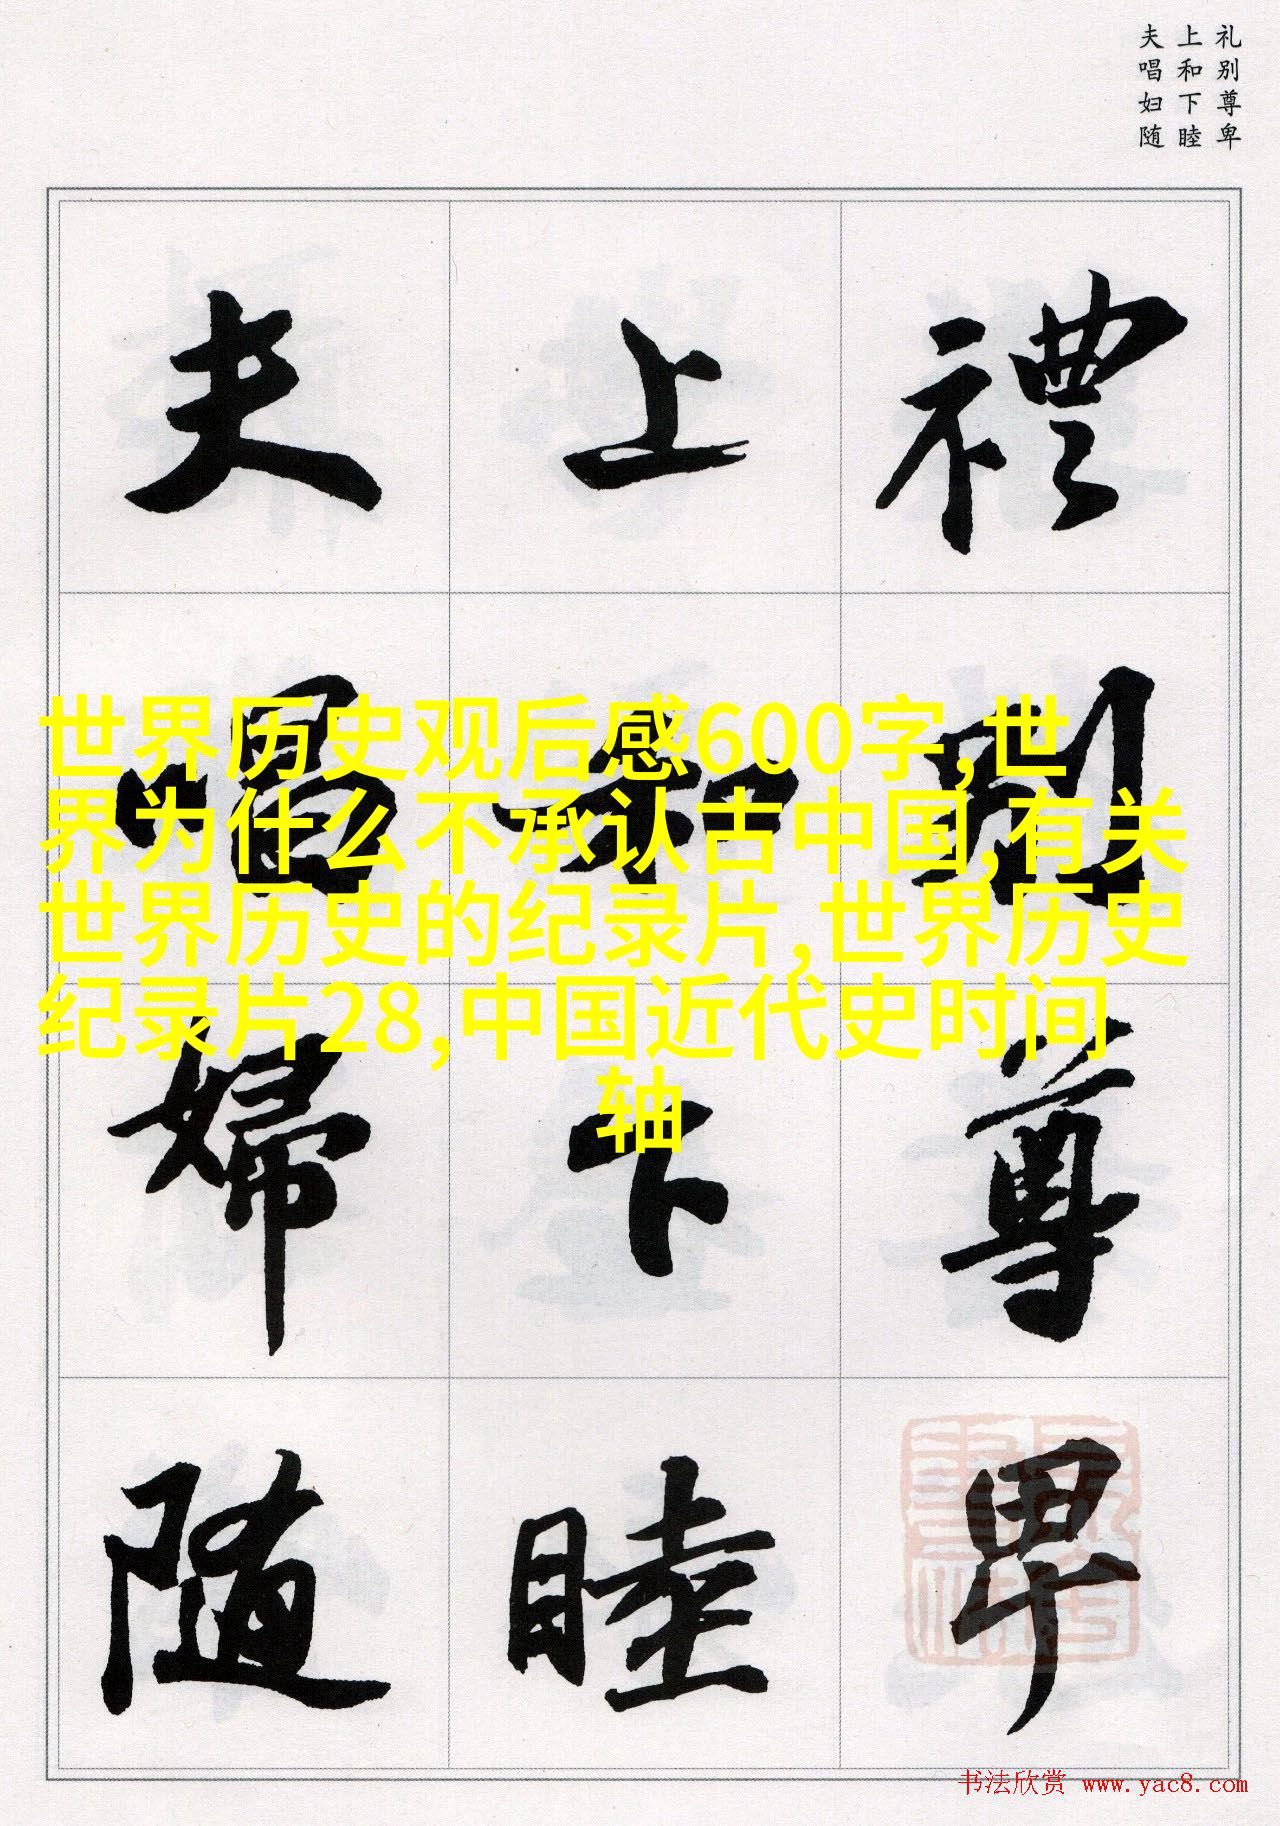 礼别尊卑
上和下睦
夫唱妇随
禮別尊卑
上和下睦
夫唱婦隨
世界历史观后感600字,世
界为什么不承认古中国,有关
世界历史的纪录片,世界历史
纪录片28,中国近代史时间
轴
书法欣赏 www.yac8.com